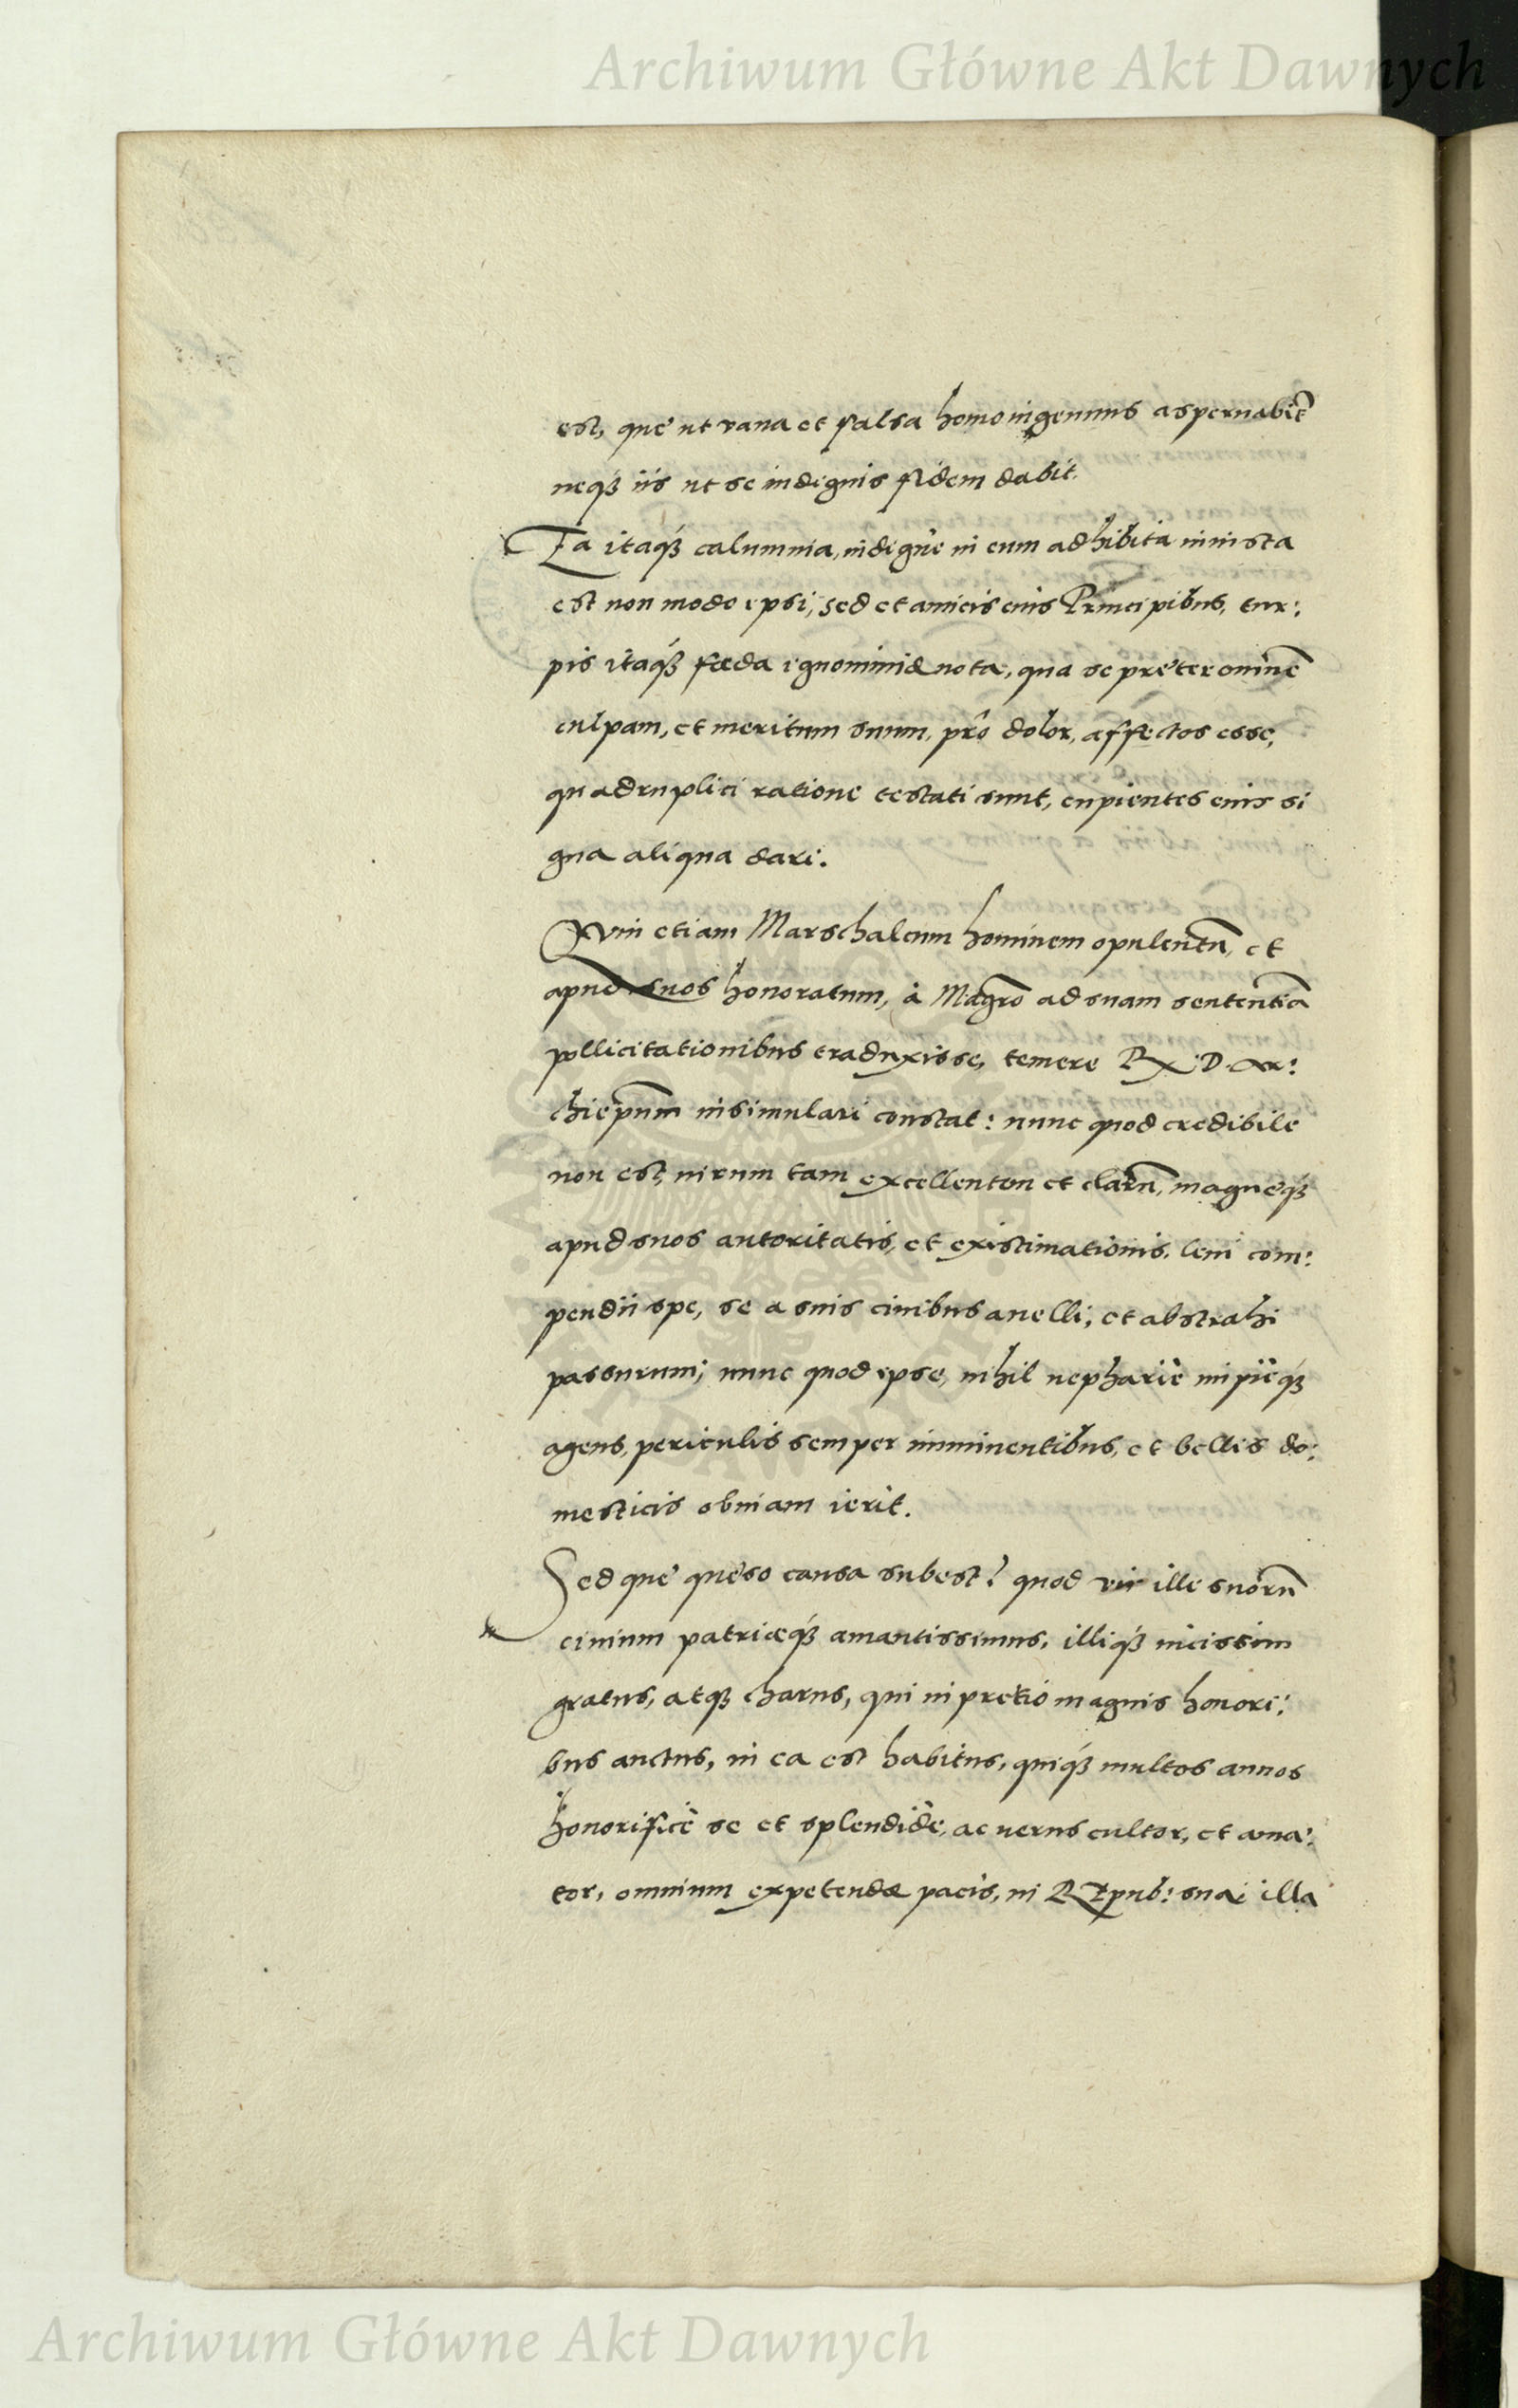 Archiwum Główne Akt Dawnych
est, quę ut vana et falsa homo ingenuus aspernabit̃
neq́ꝫ iis ut se indignis fidem dabit.
Ea itaq́ꝫ calumnia, indignè in eum adhibita iniusta
est non modo ipsi, sed et amicis eius Principibus, tur:
pis itaq́ꝫ fœda ignominiæ nota, qua se pręter omnẽ
culpam, et meritum suum, prô dolor, affectos esse,
quadruplici ratione testati sunt, cupientes eius si
gna aliqua dari.
Quin etiam Marschalcum hominem opulentũ, et
apud suos honoratum, à Magr̃o ad suam sententiã
pollicitationibus traduxisse, temere R. D. Ar:
chiep̃um insimulari constat: nunc quod credibile
non est, uirum tam excellentem et clarũ, magnęq́ꝫ
apud suos autoritatis, et existimationis, leui com:
pendii spe, se a suis ciuibus auelli, et abstrahi
passurum; nunc quod ipse, nihil nephariè impièq́ꝫ
agens, periculis semper imminentibus, et bellis do:
mesticis obuiam ierit.
Sed quę quęso causa subest? quod vir ille suorũ
ciuium patriæq́ꝫ amantissimus, illiq́ꝫ uicissim
gratus, atqꝫ charus, qui in pretio magnis honori:
bus auctus, in ea est habitus, quiq́ꝫ multos annos
honorificè se et splendidè, ac uerus cultor, et ama:
tor, omnium expetendæ pacis, in Rpub: sua illa
Archiwum Główne Akt Dawnych